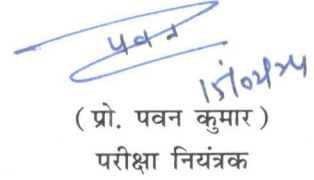 पवन
15/02/24
( प्रो. पवन कुमार )
परीक्षा नियंत्रक